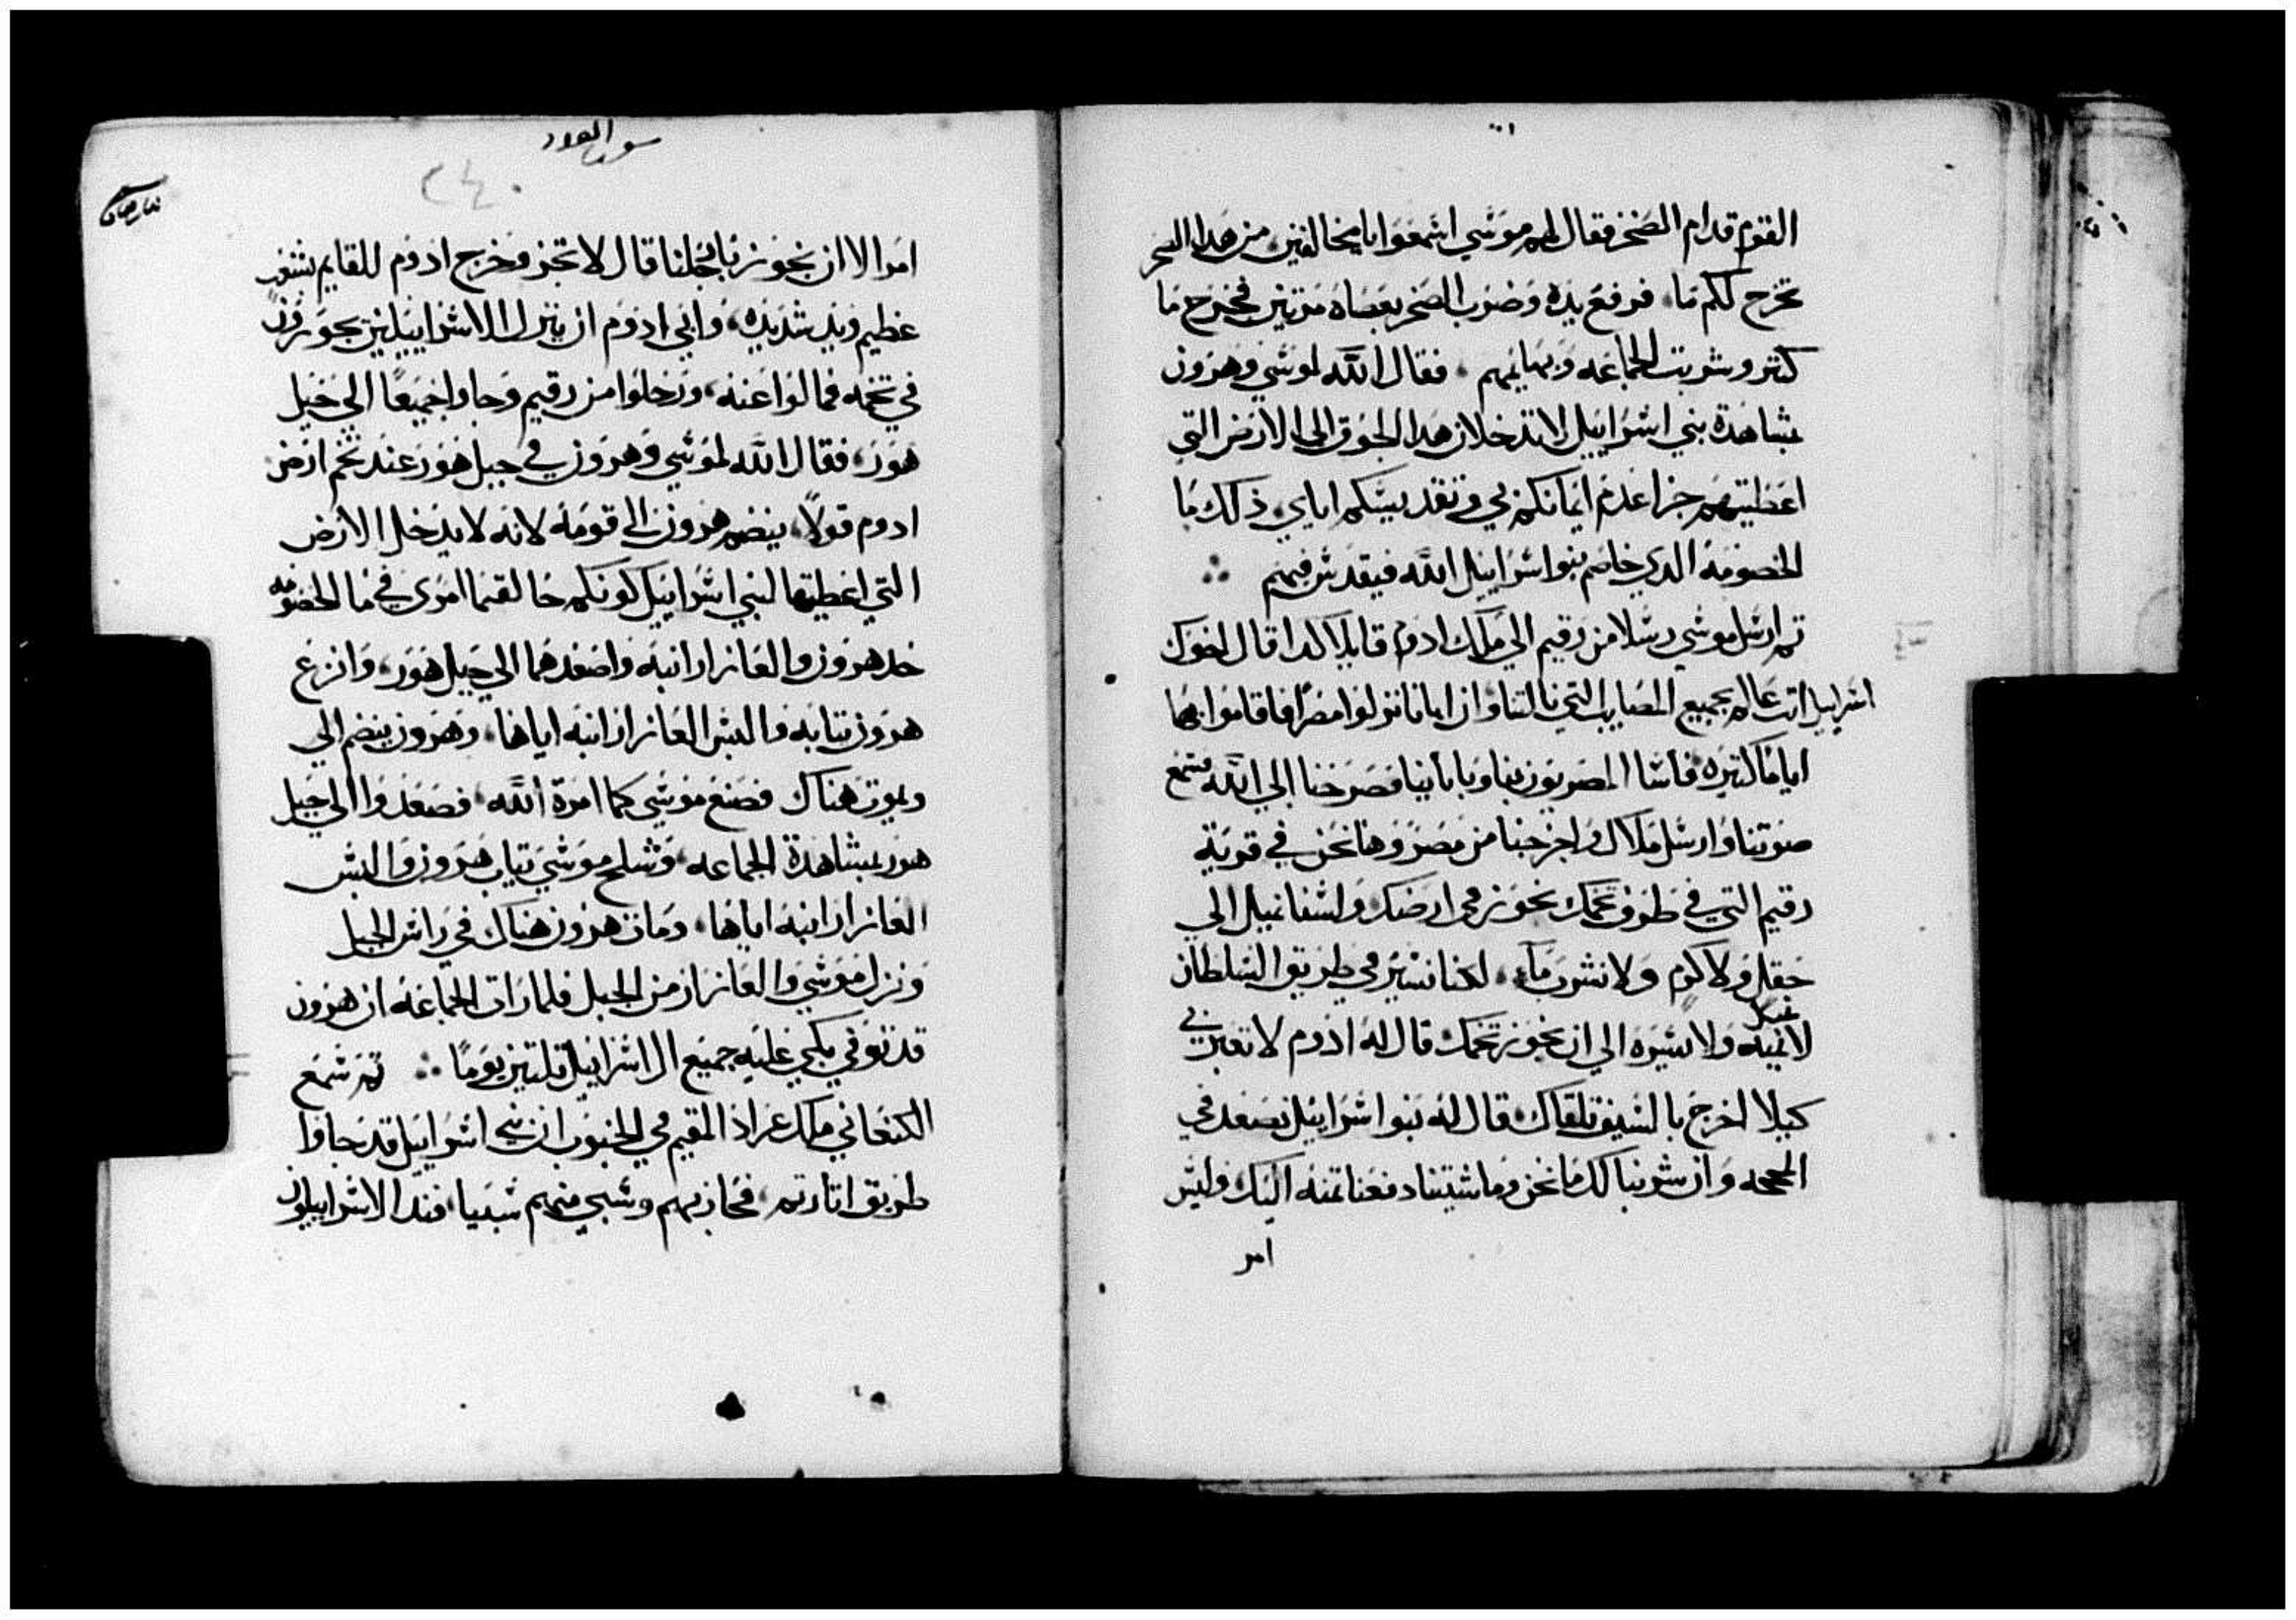 القوم قدام الصخر فقال لهم موسي اسمعوا يا مخالفين من هدا الصخر
نخرج لكم ما، فرفع يده وضرب الصخر بعصاه مرتين فخرج ما
كتير وشربت الجماعه وبهايمهم، فقال الله لموسي وهرون
بمشاهدة بني اسراييل لا تدخلان هدا الجوق الي الارض التي
اعطيتهم جزا عدم ايمانكم بي وتقديسكم اياي، ذلك ما
الخصومه الدي خاصم بنوا اسراييل الله فيقدس فيهم ∴
تم ارسل موسي رسلا من رقيم الي ملك ادوم قايلا كدا قال اخوك
اسراييل انت عالم بجميع المصايب التي نالتنا وان ابانا نزلوا مصر فاقاموا بها
اياما كتيره فاسا المصريون بنا وبابائنا فصرخنا الي الله فسمع
صوتنا وارسل ملاك واخرجنا من مصر وها نحن في قرية
رقيم التي في طرف تخمك نجوز في ارضك ولسنا نميل الي
حقل ولا كرم ولا نشرب ماء، لكننا نسير في طريق السلطان
نميل
لا يمنه ولا يسره الي ان نجوز تخمك قال له ادوم لا تعبر بي
كيلا اخرج بالسيف تلقاك قال له بنوا اسراييل نصعد في
المحجه وان شربنا لك ما نحن وماشيتنا دفعنا تمنه اليك وليس
امر
سفر العدد
٢٤٠
امرا الا ان نجوز بارجلنا قال لا تجز وخرج ادوم للقايهم بشعب
عظيم ويد شديده، وابي ادوم ان يترك الاسراييليين يجوزون
في تخمه فمالوا عنه، ورحلوا من رقيم وجاوا جميعا الي جبل
هور، فقال الله لموسي وهرون في جبل هور عند تخم ارض
ادوم قولا، ينضم هرون الي قومه لانه لا يدخل الارض
التي اعطيتها لبني اسراييل كونكم خالفتما امري في ما الخصومه
خد هرون والعازار ابنه واصعدهما الي جبل هور، وانزع
هرون تيابه والبس العازار ابنه اياها، وهرون ينضم الي
ويموت هناك فصنع موسي كما امره الله، فصعدوا الي جبل
هور بمشاهدة الجماعه، وسلح موسي تياب هرون والبس
العازار ابنه اياها، ومات هرون هناك في راس الجبل
ونزل موسي والعازار من الجبل فلما رات الجماعه ان هرون
قد توفي بكي عليه جميع ال اسراييل تلتين يوما ∴ تم سمع
الكنعاني ملك عراد المقيم في الجنوب ان بني اسراييل قد جاوا
طريق اتاريم، فحاربهم وسبي منهم سبيا، فندر الاسراييليون